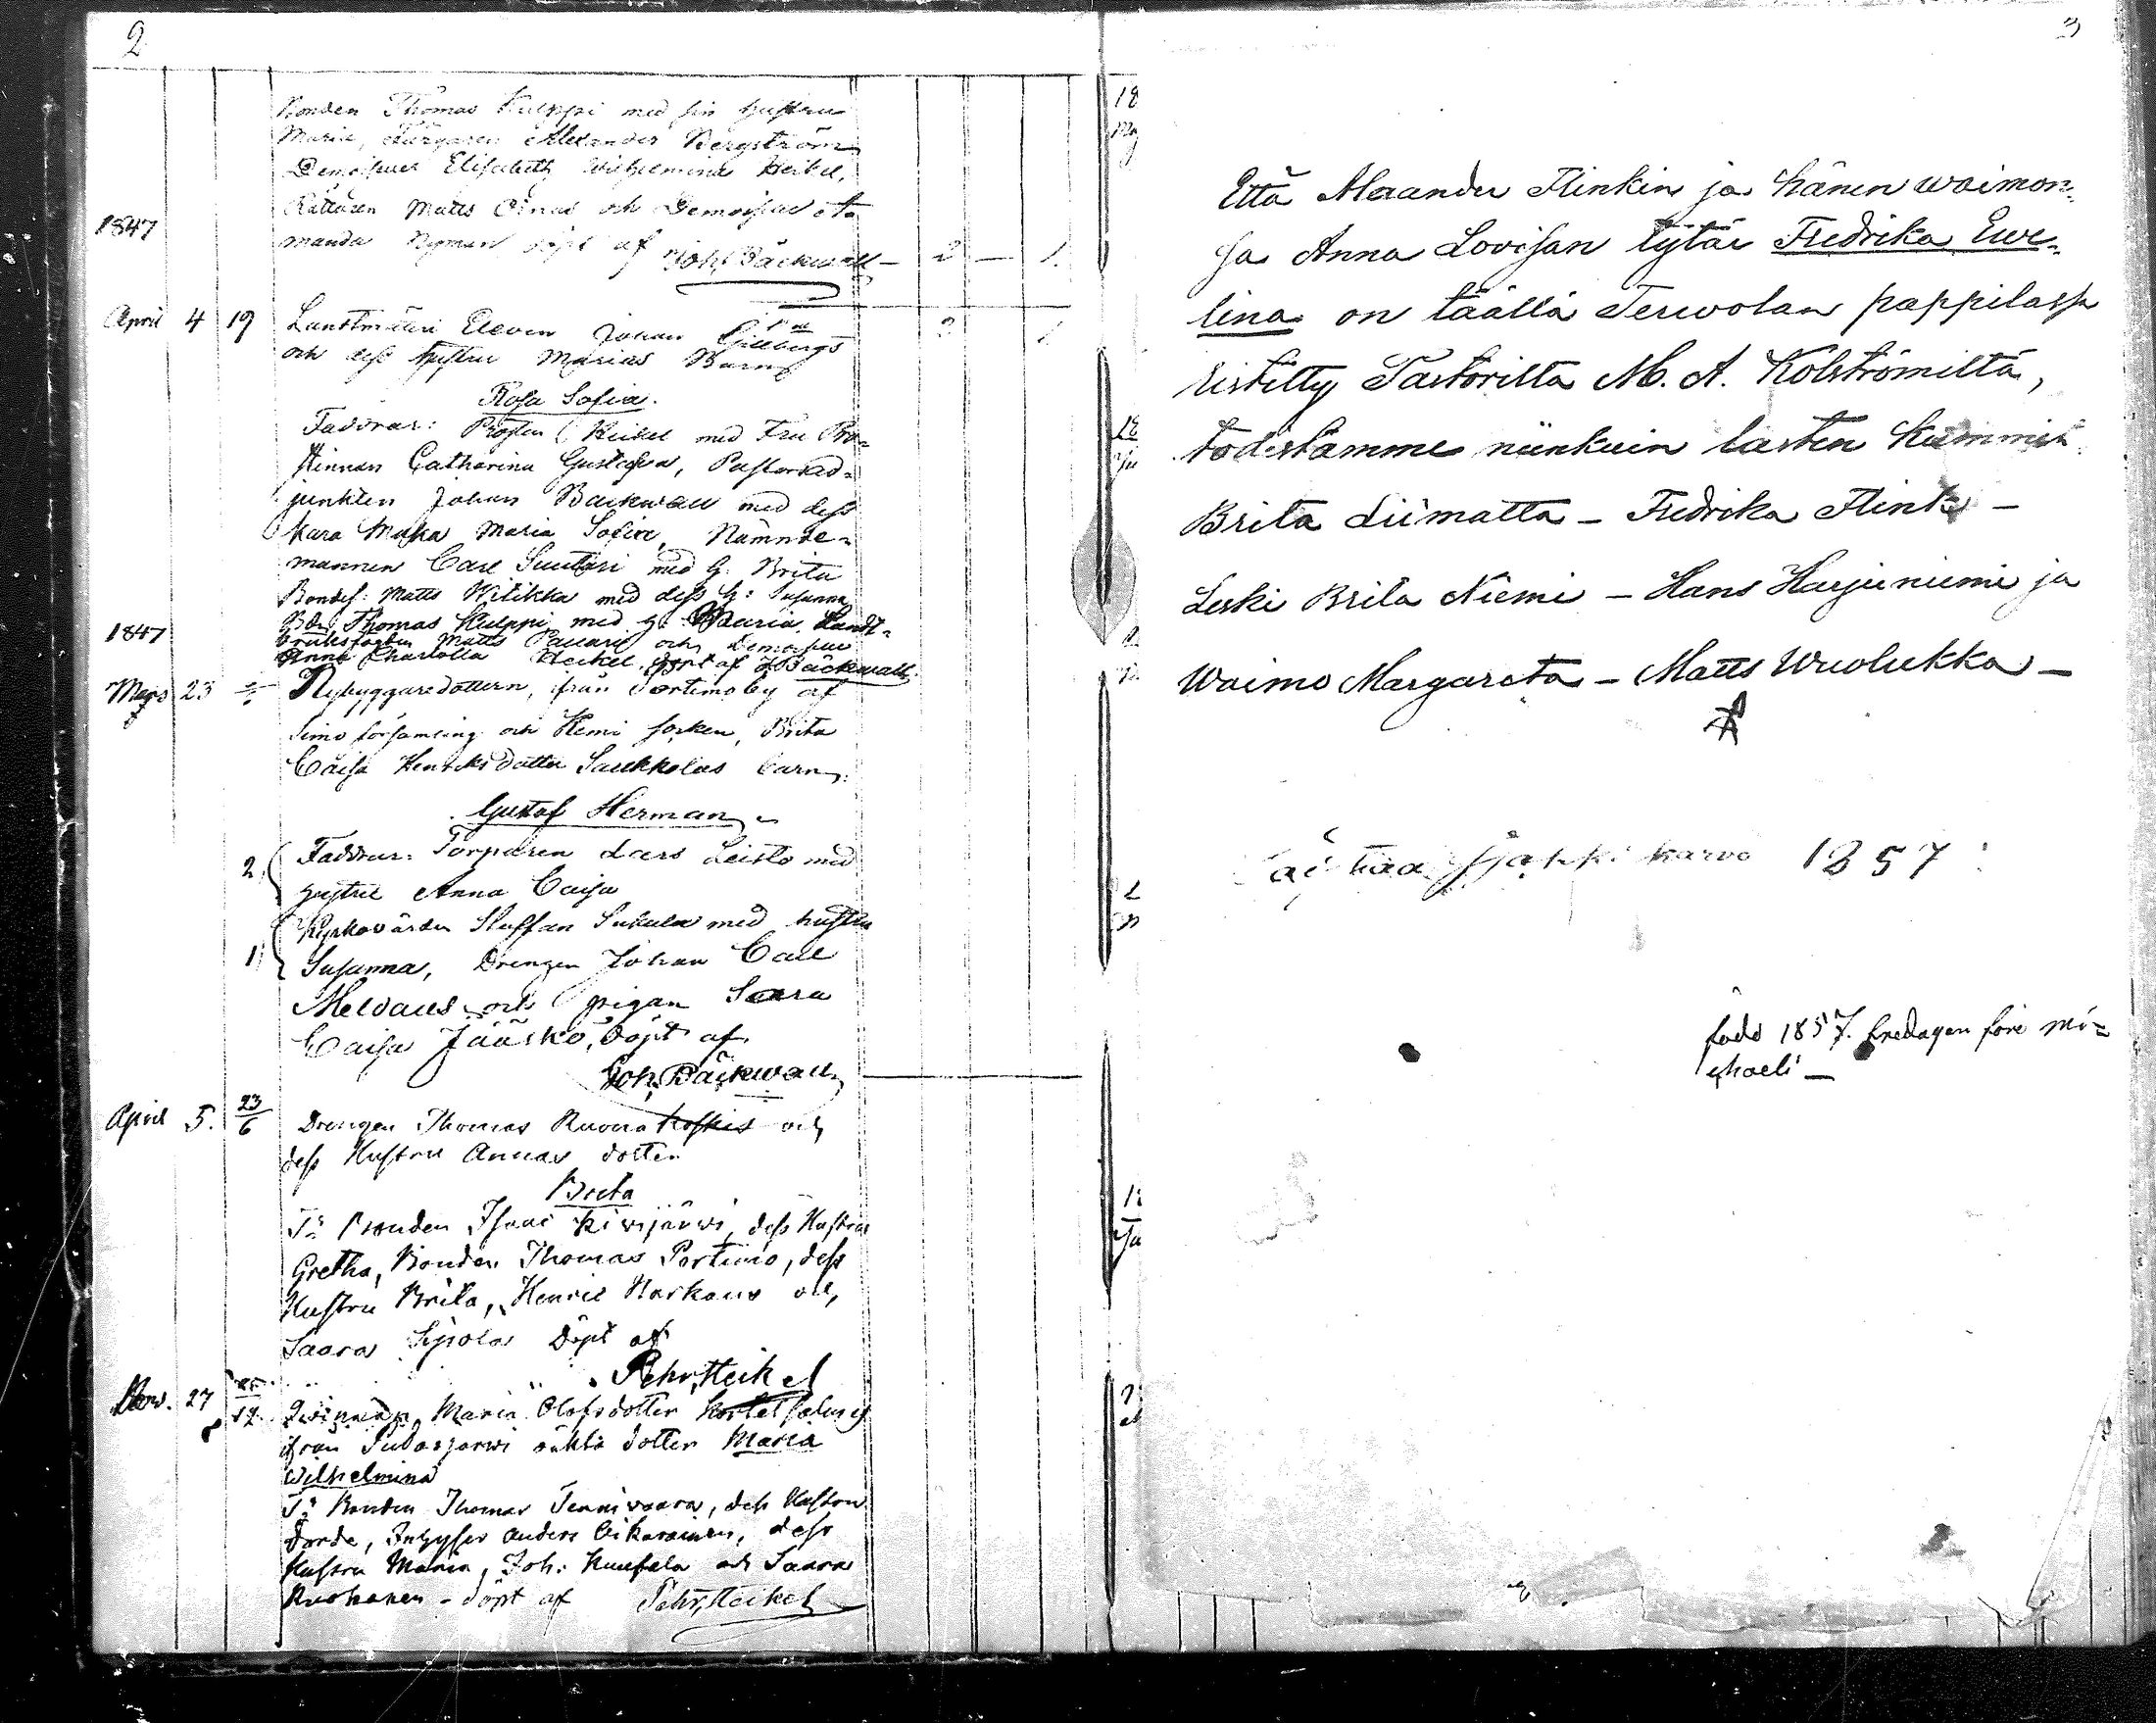 2
Bonden Thomas Kulppi med sin hustru
Maria, Färgaren Alexander Bergström
Demoiselle Elisabeth Wilhelmina Heikel,
Rättaren Matts och Demoiselle A
1847
manda Nyman döpt af Joh. Bäckwall – 2 – 1.
April 4 19 Landtmäteri Eleven Johan Gillbergs 2 1
och dess hustru Marias Barn
Rosa Sofia.
Faddrar: Prosten Heikel med Fru Pro-
stinnan Catharina Gustafva, Pastorsad-
junkten Johan Backwall med dess
kära Maka Maria Sofia, Nämnde-
mannen Carl Suutari med h. Brita
Bondes: Matts Kilikka med dess h: Susanna
1847
Bdn Thomas Kulppi med h. Maria. Landt-
bruksfogden Matts och Demoiselle
Anna Charlotta Heikel. döpt af J Bäckwall.
Mars 23 Nybyggaredottern, från Portimo by af
Simo församling och Kemi socken, Brita
Caisa Henriksdotter Saukkolas barn:
Gustaf Herman
2, Faddrar: Torparen Lars Leisto med
hustru Anna Caisa
Kyrkovärden Staffan Sukula med hustru
1, Susanna, Drengen Johan Carl
Meldaus och pigan Saara
Caisa Jääskö, döpt af
Joh. Bäckwall
April 5. 23/6 Drengen Thomas Ruonakoskis och
dess Hustru Annas dotter
Brita
Fr Bonden Isaac Kivijärwi, dess Hustru
Gretha, Bonden Thomas Portimo, dess
Hustru Brita, Henric Harkans och,
Saara Sipola Döpt af
Pehr, Heikel
Nov. 27 /12 Qwinnan Maria Olofsdotter
ifrån Pudasjärwi oäkta dotter Maria
Wilhelmina
Fr Bonden Thomas Tennivaara, dess Hustru
Inhyses Anders Oikarainen, dess
Hustru Maria, Joh: Kuusela och Saara
Ruohanen – döpt af Pehr, Heikel
3
Että Alexander Flinkin ja hänen waimon-
sa Anna Lovisan tytär Fredrika Ewe-
lina on täällä Terwolan pappilassa
ristitty Pastorilta M. A. Kolströmiltä,
todistamme niinkuin lasten kummit
Brita Liimatta – Fredrika Flink –
Leski Brita Niemi – Hans Harjuniemi ja
Waimo Margareta – Matts Wuolukka –
1857
född 1857. fredagen före Mi-
chaeli –